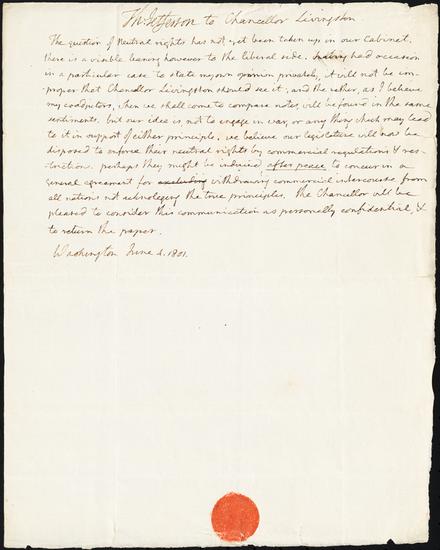 Th: Jefferson to Chancellor Livingston
The question of Neutral rights has not yet been taken up in our Cabinet.
there is a visible leaning however to the liberal side. having had occasion
in a particular case to state my own opinion privately, it will not be im-
proper that Chancellor Livingston should see it; and the rather, as I believe
my coadjutors, when we shall come to compare notes will be found in the same
sentiments. but our idea is not to engage in war, or any thing which may lead
to it in support of either principle. we believe our legislature will now be
disposed to enforce their neutral rights by commercial regulations & res-
triction. perhaps they might be induced after peace to concur in a
general agreement for excluding withdrawing commercial intercourse from
all nations not acknoleging the true principles. the Chancellor will be
pleased to consider this communication as personally confidential, &
to return the paper.
Washington June 1801.